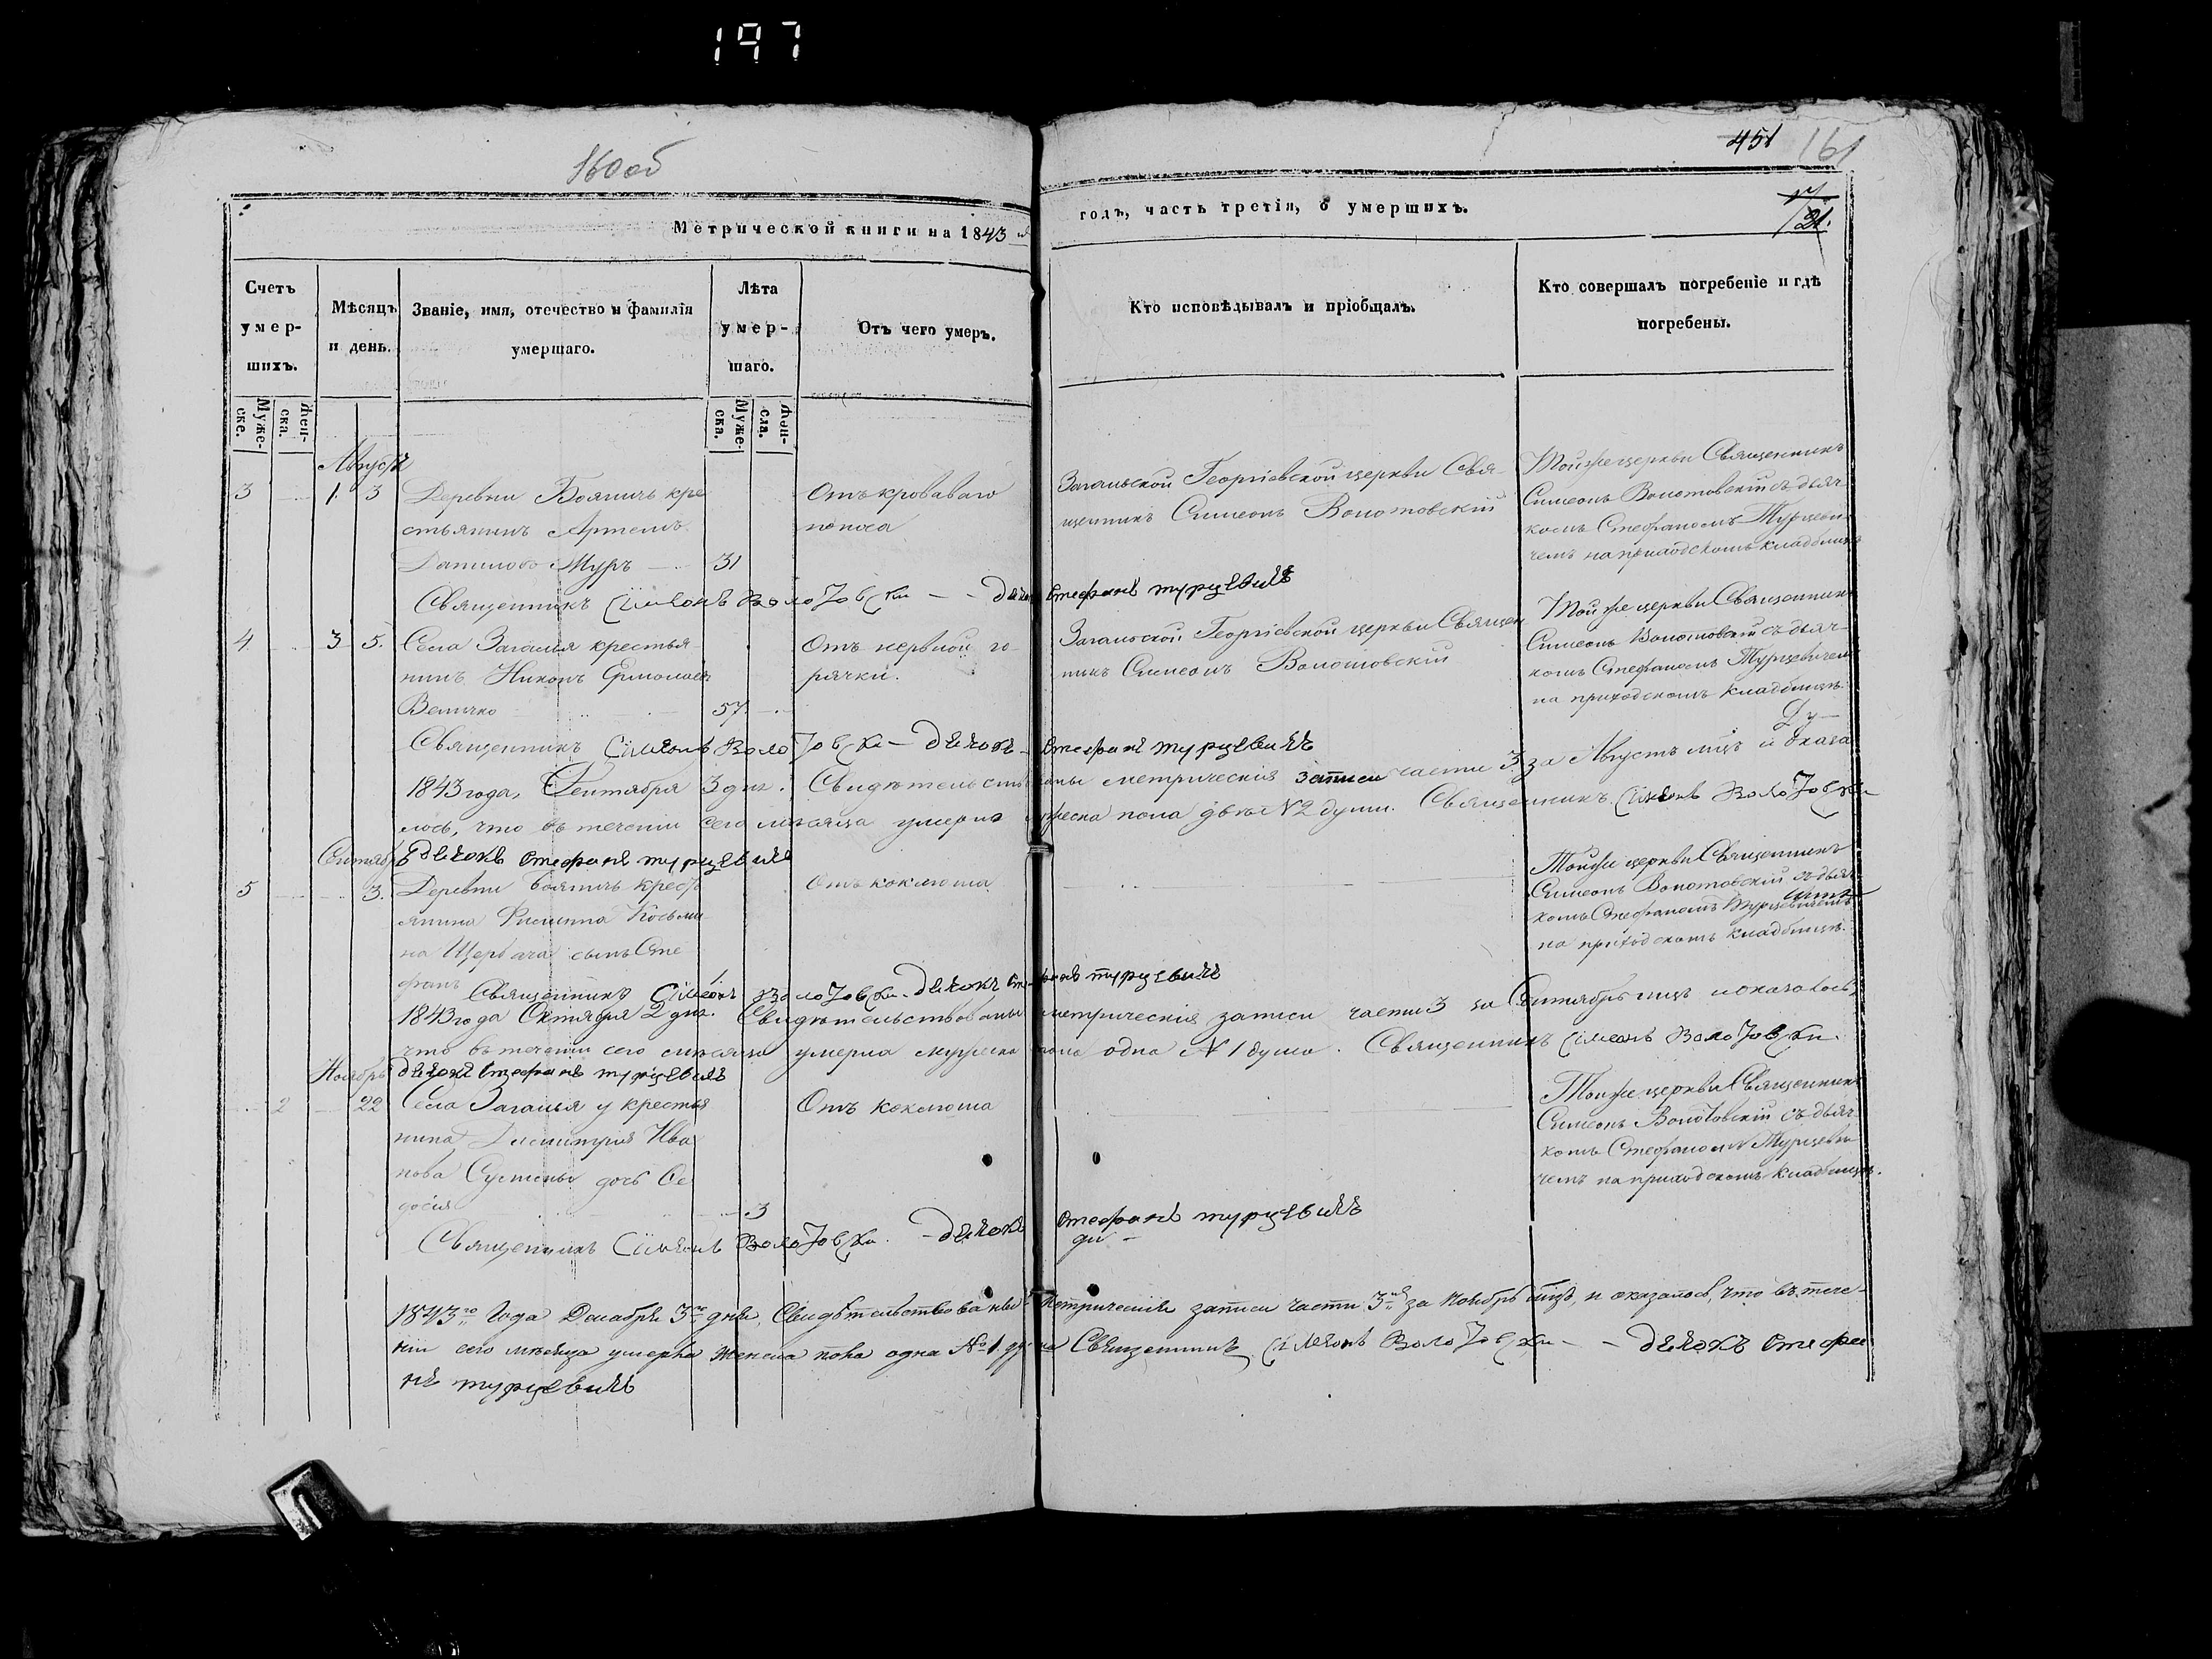 197
160 об
451 161
Метрической книги на 1843
годъ, часть третія, о умершихъ.
31.
Счетъ умер-шихъ.
Мѣсяцъ и день.
Званіе, имя, отечество и фамилія умершаго.
Лѣта умер-шаго.
Отъ чего умеръ.
Кто исповѣдывалъ и пріобщалъ.
Кто совершалъ погребеніе и гдѣ погребены.
Муже-ске.
Жен-ска.
Муже-ска.
Жен-сла.
Августъ
3 1. 3 Деревни Боянич кре
стьянинъ Артемъ
Данилов Муръ 31
Отъ кроваваго
поноса
Загальской Георгіевской церкви Свя-
щенникъ Симеонъ Волотовскій
Тойже церкви Священникъ
Симеонъ Волотовскій съ дьяч-
комъ Стефаномъ Турцеви-
чемъ на приходскомъ кладбищѣ
Священникъ Сімеонъ Волотовски -- дьчокъ Стефанъ турцевичъ
4. 3 5. Села Загалья крестья
нинъ Никонъ Ермолаевъ
Величко 57.
Отъ нервной го-
рячки.
Загальской Георгіевской церкви Священ
никъ Симеонъ Волотовскій
Тойже церкви Священникъ
Симеонъ Волотовскій съ дьяч-
комъ Стефаномъ Турцевичемъ
на приходскомъ кладбищѣ.
Священникъ Сімеонъ Волотовски - дьчокъ Стефанъ турцевичъ
1843 года, Сентября 3 дня. Свидѣтельствованы метрическія записи части 3 за Августъ мцъ и оказа
лось, что въ теченіи сего мѣсяца умерло мужеска пола двѣ № 2 души. Священникъ Сімеонъ Волотовски
Сентябрь дьчокъ Стефанъ турцевичъ
5 3. Деревни Боянич крест
янина Филиппа Косьми
на Щербача сынъ Сте
фанъ 1.
Отъ коклюша
Тойже церкви Священникъ
Симеонъ Волотовскій съ дьяч
комъ Стефаномъ Турцевичемъ
на приходскомъ кладбищѣ.
Священникъ Сімеонъ Волотовски - дьчокъ Стефанъ турцевичъ
1843 года Октября 2 дня. Свидѣтельствованы метрическія записи части 3 за Сентябрь мцъ и оказалось,
что въ теченіи сего мѣсяца умерла мужеска пола одна № 1 душа. Священникъ Сімеонъ Волотовски.
Ноябрь дьчокъ Стефанъ турцевичъ
2 22 Села Загалья у крестья
нина Димитрія Ива
нова дочь Ѳе
досія 3
Отъ коклюша
Тойже церкви Священникъ
Симеонъ Волотовскій съ дьяч
комъ Стефаномъ Турцеви
чемъ на приходскомъ кладбищѣ.
Священникъ Сімеонъ Волотовски. - дьчокъ Стефанъ турцевичъ
1843го Года Декабря 3го дня, Свидѣтельствованы Метрическія записи части 3й за Ноябрь мцъ, и оказалось, что въ тече-
ніи сего мѣсяца умерла женска пола одна № 1 душа Священникъ Сімеонъ Волотовски -- дьчокъ Стефа
нъ турцевичъ